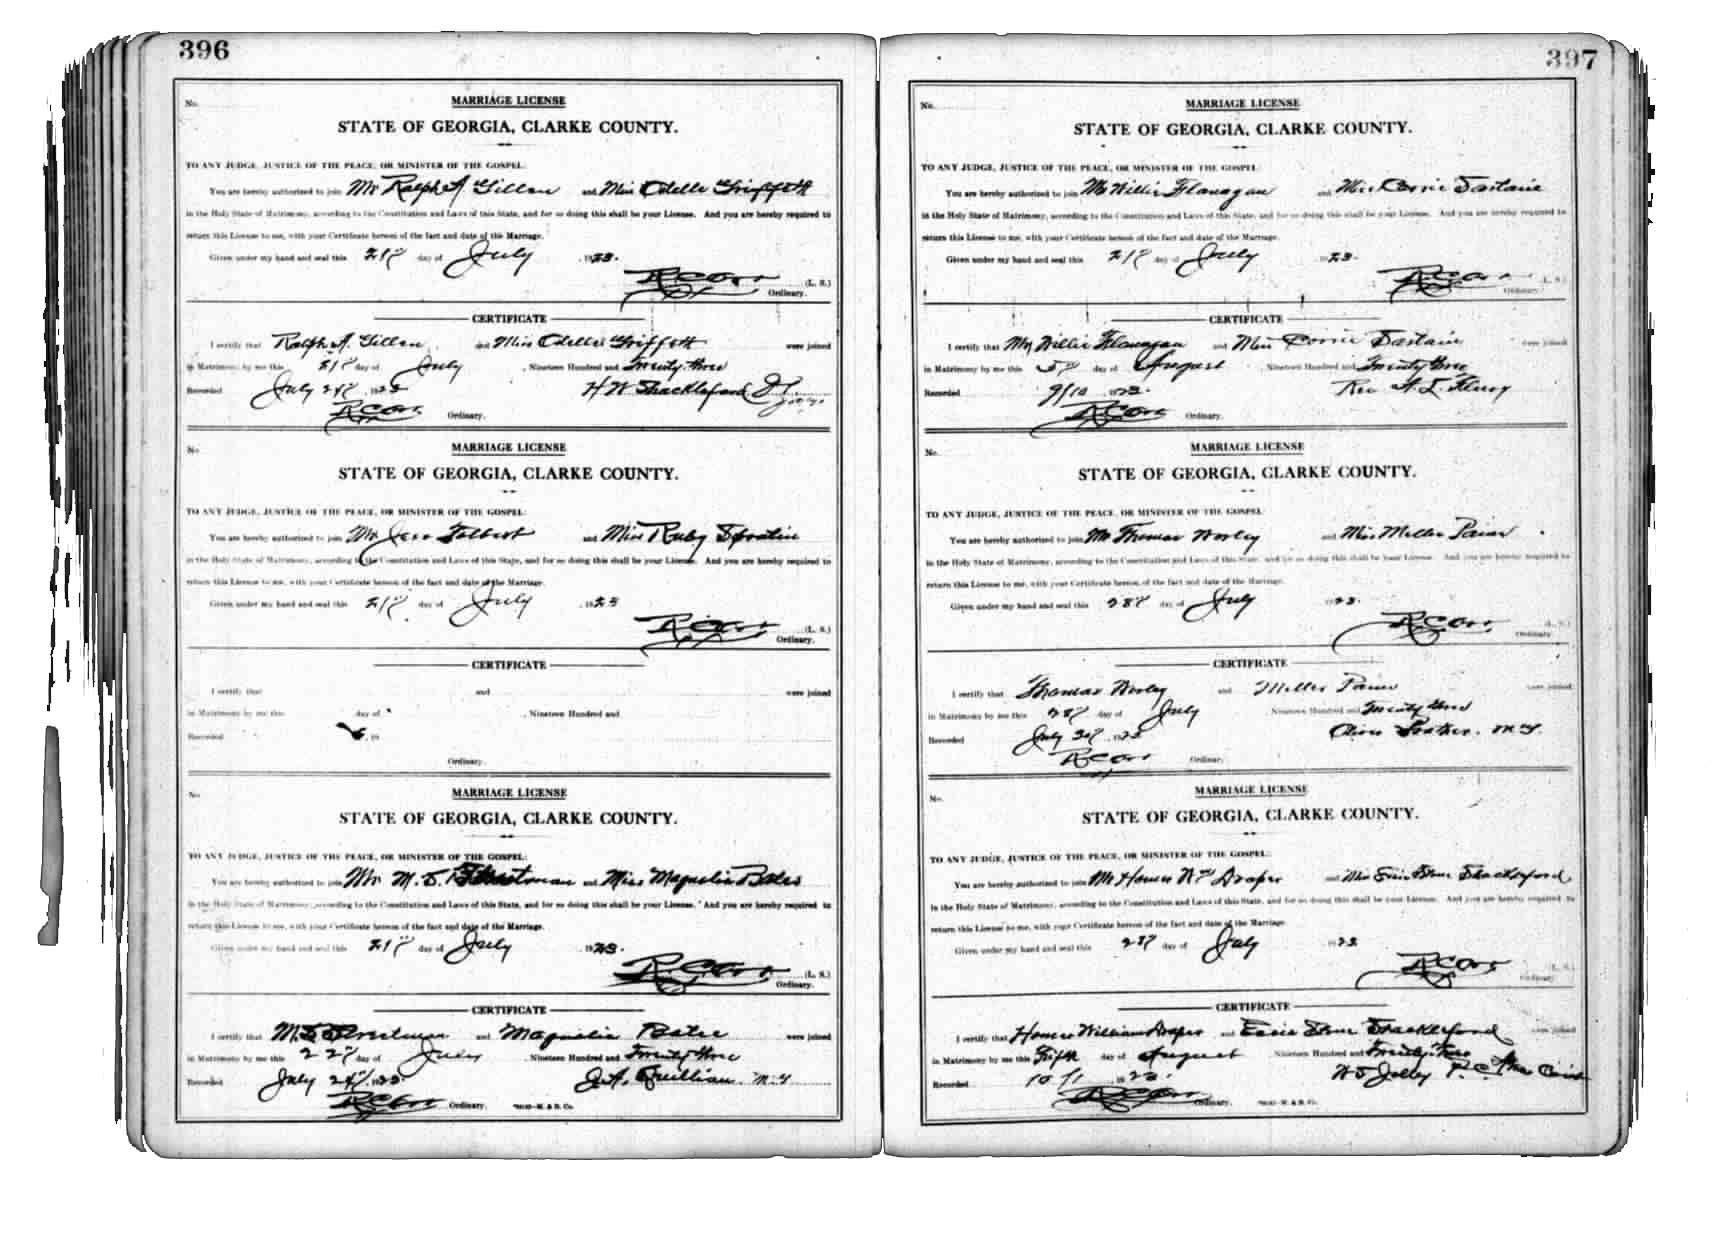 396
No.
MARRIAGE LICENSE
STATE OF GEORGIA, CLARKE COUNTY.
TO ANY JUDGE, JUSTICE OF THE PEACE, OR MINISTER OF THE GOSPEL:
You are hereby authorized to join Mr Ralph A. Gillen and Miss Odelle Griffeth
in the Holy State of Matrimony, according to the Constitution and Laws of this State, and for so doing this shall be your License. And you are hereby required to
return this License to me, with your Certificate hereon of the fact and date of the Marriage.
Given under my hand and seal this 21 day of July 1923.
(L. S.)
Ordinary.
CERTIFICATE
I certify that Ralph A. Gillen and Miss Odelle Griffeth were joined
in Matrimony by me this 21 day of July, Nineteen Hundred and Twenty three
Recorded July 24 1923 H W Shackleford
Ordinary.
No.
MARRIAGE LICENSE
STATE OF GEORGIA, CLARKE COUNTY.
TO ANY JUDGE, JUSTICE OF THE PEACE, OR MINISTER OF THE GOSPEL:
You are hereby authorized to join Mr Jess Tolbert and Miss Ruby
in the Holy State of Matrimony, according to the Constitution and Laws of this State, and for so doing this shall be your License. And you are hereby required to
return this License to me, with your Certificate hereon of the fact and date of the Marriage.
Given under my hand and seal this 21 day of July 1923
(L. S.)
Ordinary.
CERTIFICATE
I certify that and were joined
in Matrimony by me this day of , Nineteen Hundred and
Recorded 19
Ordinary.
No.
MARRIAGE LICENSE
STATE OF GEORGIA, CLARKE COUNTY.
TO ANY JUDGE, JUSTICE OF THE PEACE, OR MINISTER OF THE GOSPEL:
You are hereby authorized to join Mr M. and Miss Magnolia Bates
in the Holy State of Matrimony, according to the Constitution and Laws of this State, and for so doing this shall be your License. And you are hereby required to
return this License to me, with your Certificate hereon of the fact and date of the Marriage.
Given under my hand and seal this 21 day of July 1923.
(L. S.)
Ordinary.
CERTIFICATE
I certify that and Magnolia Bates were joined
in Matrimony by me this 22 day of July Nineteen Hundred and Twenty three
Recorded July 24 1923 J. A. Quillian M. G.
Ordinary.
397
No.
MARRIAGE LICENSE
STATE OF GEORGIA, CLARKE COUNTY.
TO ANY JUDGE, JUSTICE OF THE PEACE, OR MINISTER OF THE GOSPEL:
You are hereby authorized to join Mr Willie Flanagan and Miss Corrie
in the Holy State of Matrimony, according to the Constitution and Laws of this State, and for so doing this shall be your License. And you are hereby required to
return this License to me, with your Certificate hereon of the fact and date of the Marriage.
Given under my hand and seal this 21 day of July 1923.
(L. S.)
Ordinary.
CERTIFICATE
I certify that Mr Willie Flanagan and Miss Corrie were joined
in Matrimony by me this 5 day of August Nineteen Hundred and Twenty three
Recorded 9/10 1923. Rev
Ordinary.
No.
MARRIAGE LICENSE
STATE OF GEORGIA, CLARKE COUNTY.
TO ANY JUDGE, JUSTICE OF THE PEACE, OR MINISTER OF THE GOSPEL
You are hereby authorized to join Mr Thomas Worley and Miss
in the Holy State of Matrimony, according to the Constitution and Laws of this State, and for so doing this shall be your License. And you are hereby required to
return this License to me, with your Certificate hereon, of the fact and date of the Marriage.
Given under my hand and seal this 28 day of July 1923.
(L. S.)
Ordinary.
CERTIFICATE
I certify that Thomas Worley and were joined
in Matrimony by me this 28 day of July Nineteen Hundred and Twenty three
Recorded July 30 1923 Oliver Prather. M.G.
Ordinary.
No.
MARRIAGE LICENSE
STATE OF GEORGIA, CLARKE COUNTY.
TO ANY JUDGE, JUSTICE OF THE PEACE, OR MINISTER OF THE GOSPEL:
You are hereby authorized to join Mr Homer Wm Draper and Miss Shackleford
in the Holy State of Matrimony, according to the Constitution and Laws of this State, and for so doing this shall be your License. And you are hereby required to
return this License to me, with your Certificate hereon of the fact and date of the Marriage.
Given under my hand and seal this 28 day of July 1923
(L. S.)
Ordinary.
CERTIFICATE
I certify that Homer William Draper and Shackleford were joined
in Matrimony by me this Fifth day of August Nineteen Hundred and Twenty Three
Recorded 10/1 1923 W. T. Jolley
Ordinary.